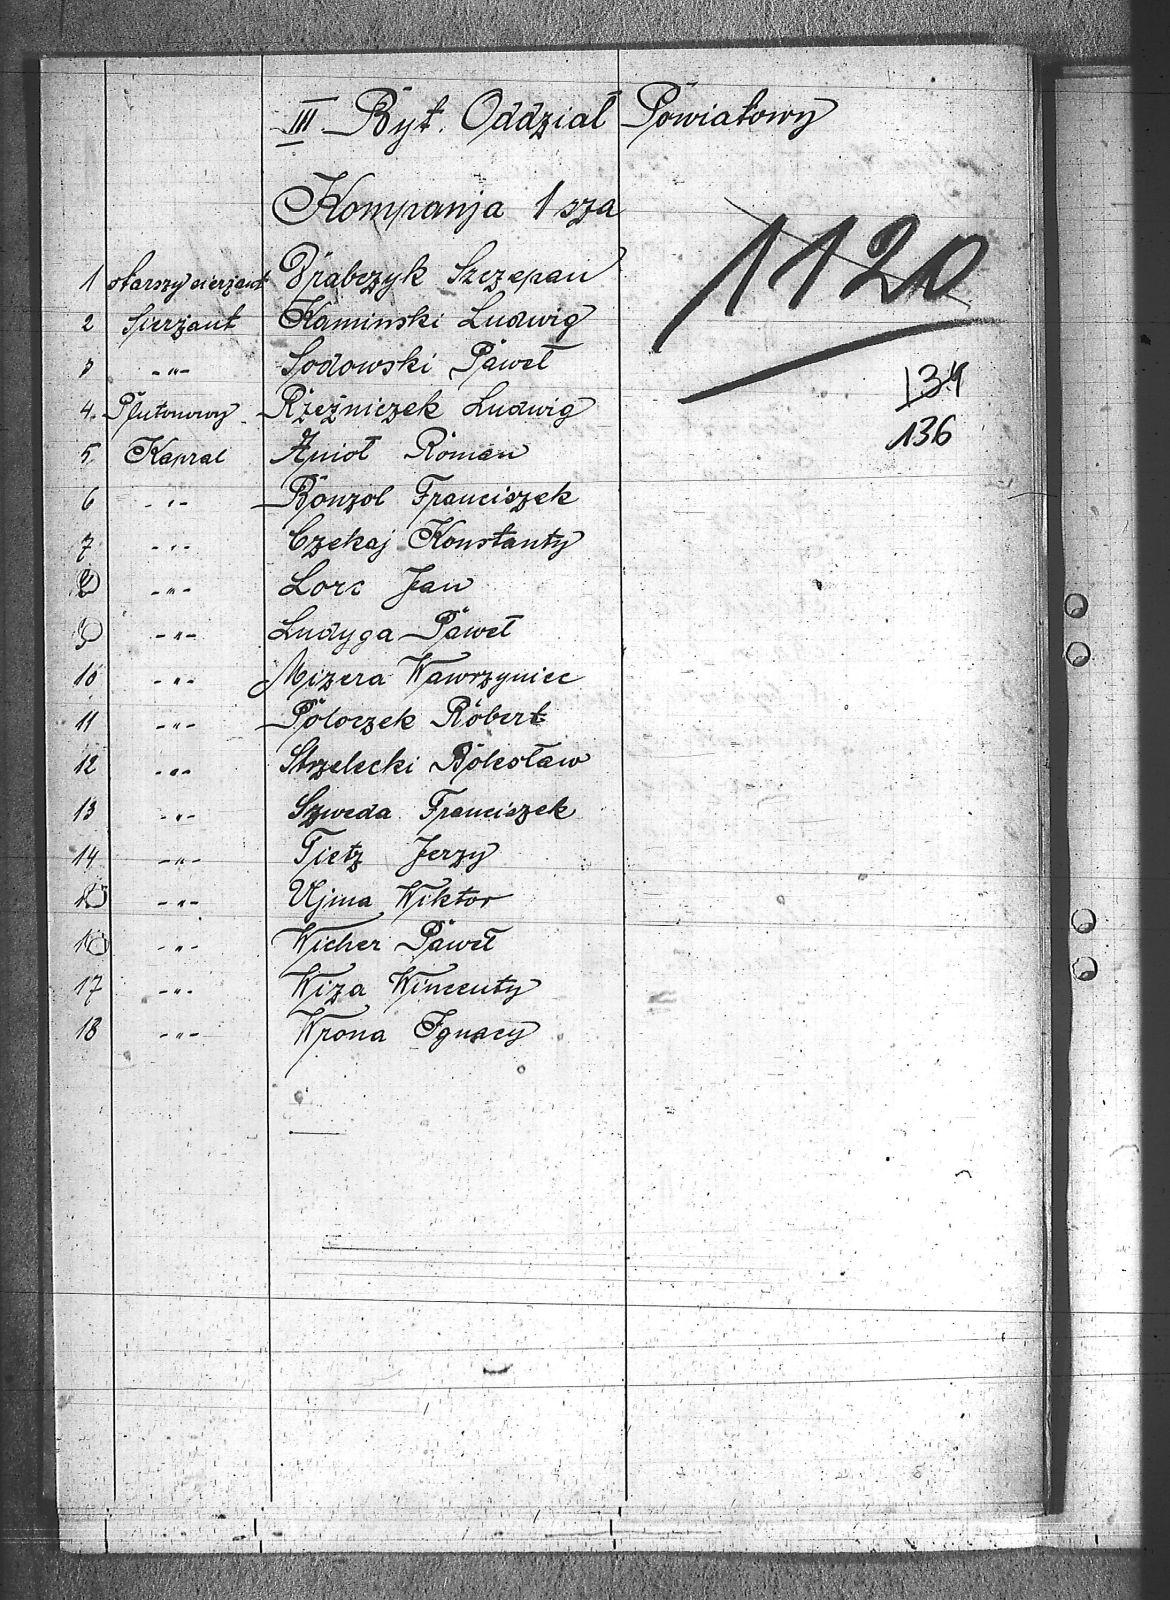 III Byt. Oddział Powiatowy
Kompanja 1 sza
1120
1 starszy sierżant Drabczyk Szczepan
2 Sierżant Kaminski Ludwig
3 -"- Sodowski Paweł
134
4. Plutonowy Rzeźniczek Ludwig
136
5 Kapral Anioł Roman
6 -"- Bonzol Franciszek
7 -"- Czekaj Konstanty
8 -"- Lorc Jan
9 -"- Ludyga Paweł
10 -"- Mizera Wawrzyniec
11 -"- Poloczek Robert
12 -"- Strzelecki Bolesław
13 -"- Szweda Franciszek
14 -"- Tietz Jerzy
15 -"- Ujma Wiktor
16 -"- Wicher Paweł
17 -"- Wiza Wincenty
18 -"- Wrona Ignacy